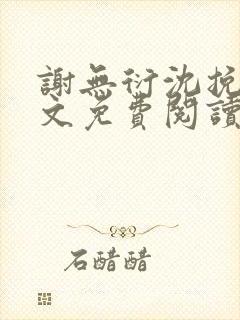 謝無衍沈挽
文免費閱讀
石醋醋